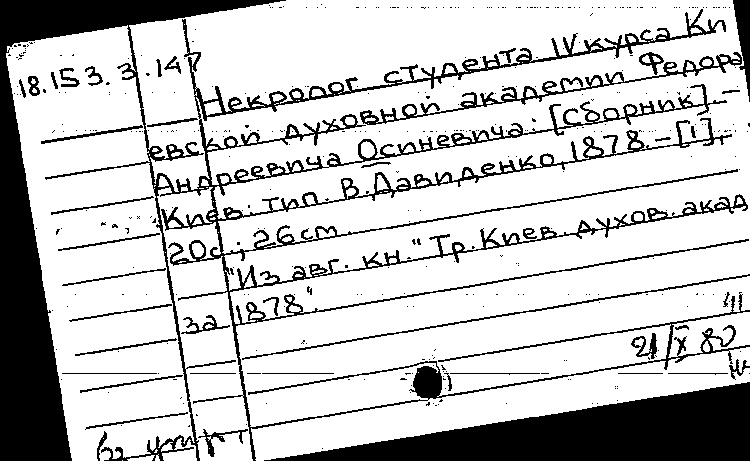 18.153.3.147
Некролог студента IV курса Ки
евской духовной академии Федора
Андреевича Осиневича: [Сборник]. -
Киев: тип. В. Давиденко, 1878. - [1],
20с.; 26 cm.
"Из авг. кн." Тр. Киев. духов. акад
за 1878".
21/X 80